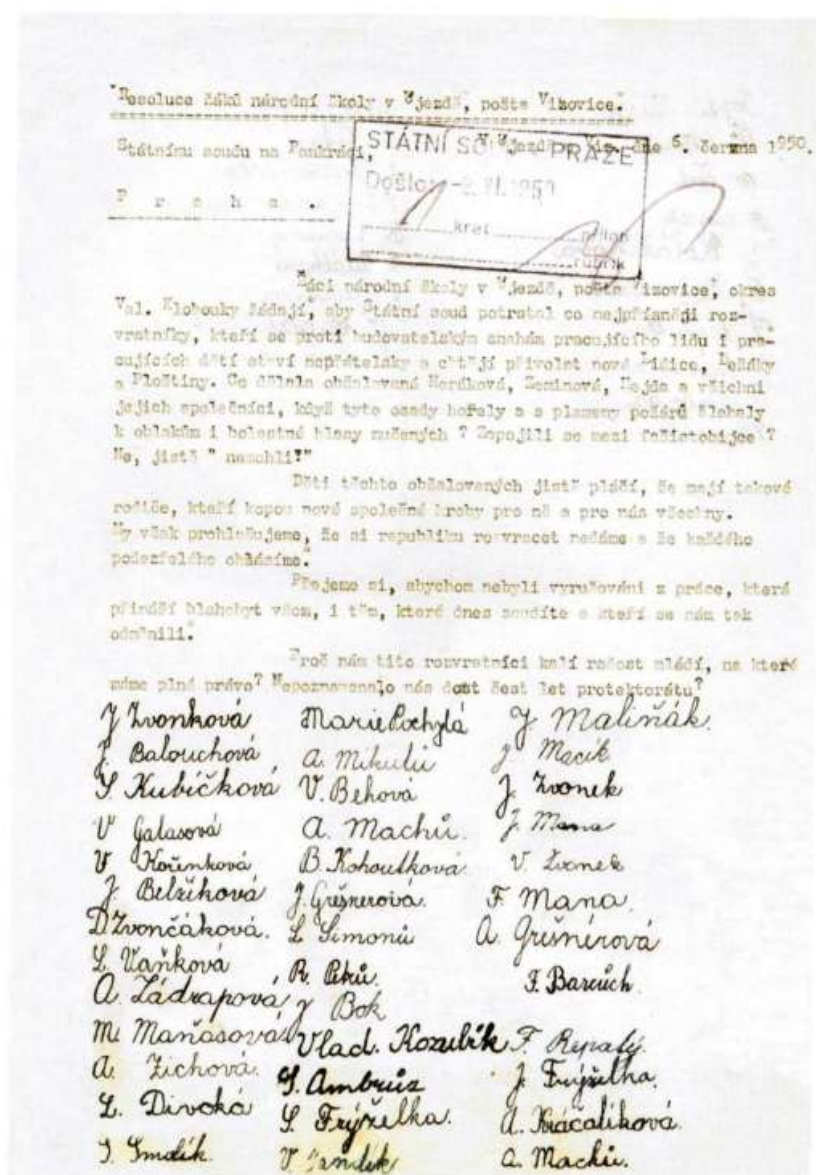 Resoluce žáků národní školy v Újezdě, pošta Vizovice.
Státnímu soudu na Pankráci, V Újezdě u Viz. dne 6. června 1950.
STÁTNÍ PRAZE
Došlo: VI. 1950
krát příloh
rubrik
P r a h a .
Žáci národní školy v Újezdě, pošta Vizovice, okres
Val. Klobouky žádají, aby Státní soud potrestal co nejpřísněji roz-
vratníky, kteří se proti budovatelským snahám pracujícího lidu i pra-
cujících dětí staví nepřátelsky a chtějí přivolat nové Lidice, Ležáky
a Ploštiny. Co dělala obžalovaná Horáková, Zeminová, Hejda a všichni
jejich společníci, když tyto osady hořely a s plameny požárů šlehaly
k oblakům i bolestné hlasy mučených ? Zapojili se mezi fašistobijce ?
Ne, jistě " nemohli!"
Děti těchto obžalovaných jistě pláčí, že mají takové
rodiče, kteří kopou nové společné hroby pro ně a pro nás všechny.
My však prohlašujeme, že si republiku rozvracet nedáme a že každého
podezřelého ohlásíme.
Přejeme si, abychom nebyli vyrušováni z práce, která
přináší blahobyt všem, i těm, které dnes soudíte a kteří se nám tak
odměnili.
Proč nám tito rozvratníci kalí radost mládí, na které
máme plné právo? Nepoznamenalo nás dost šest let protektorátu?
J Zvonková Marie Pochylá J. Maliňák.
J. Balouchová A. Mikulů J Macík
S. Kubíčková V. Běhová J. Zvonek
V Galasová A. Machů. J. Mana
V Kořenková B. Kohoutková V. Zvonek
J. Belžíková J. Grešnerová. F. Mana.
D Zvončáková. L Šimonů A. Grišnírová
L. Vaňková R. Petrů. F. Barcůch.
A. Zádrapová J Bok
M. Maňasová Vlad. Kozubík F. Repatý.
A. Zichová. S. Ambrůz J. Frýželka.
L. Divoká S. Frýželka. A. Kráčalíková.
J. Smolík. V A. Machů.